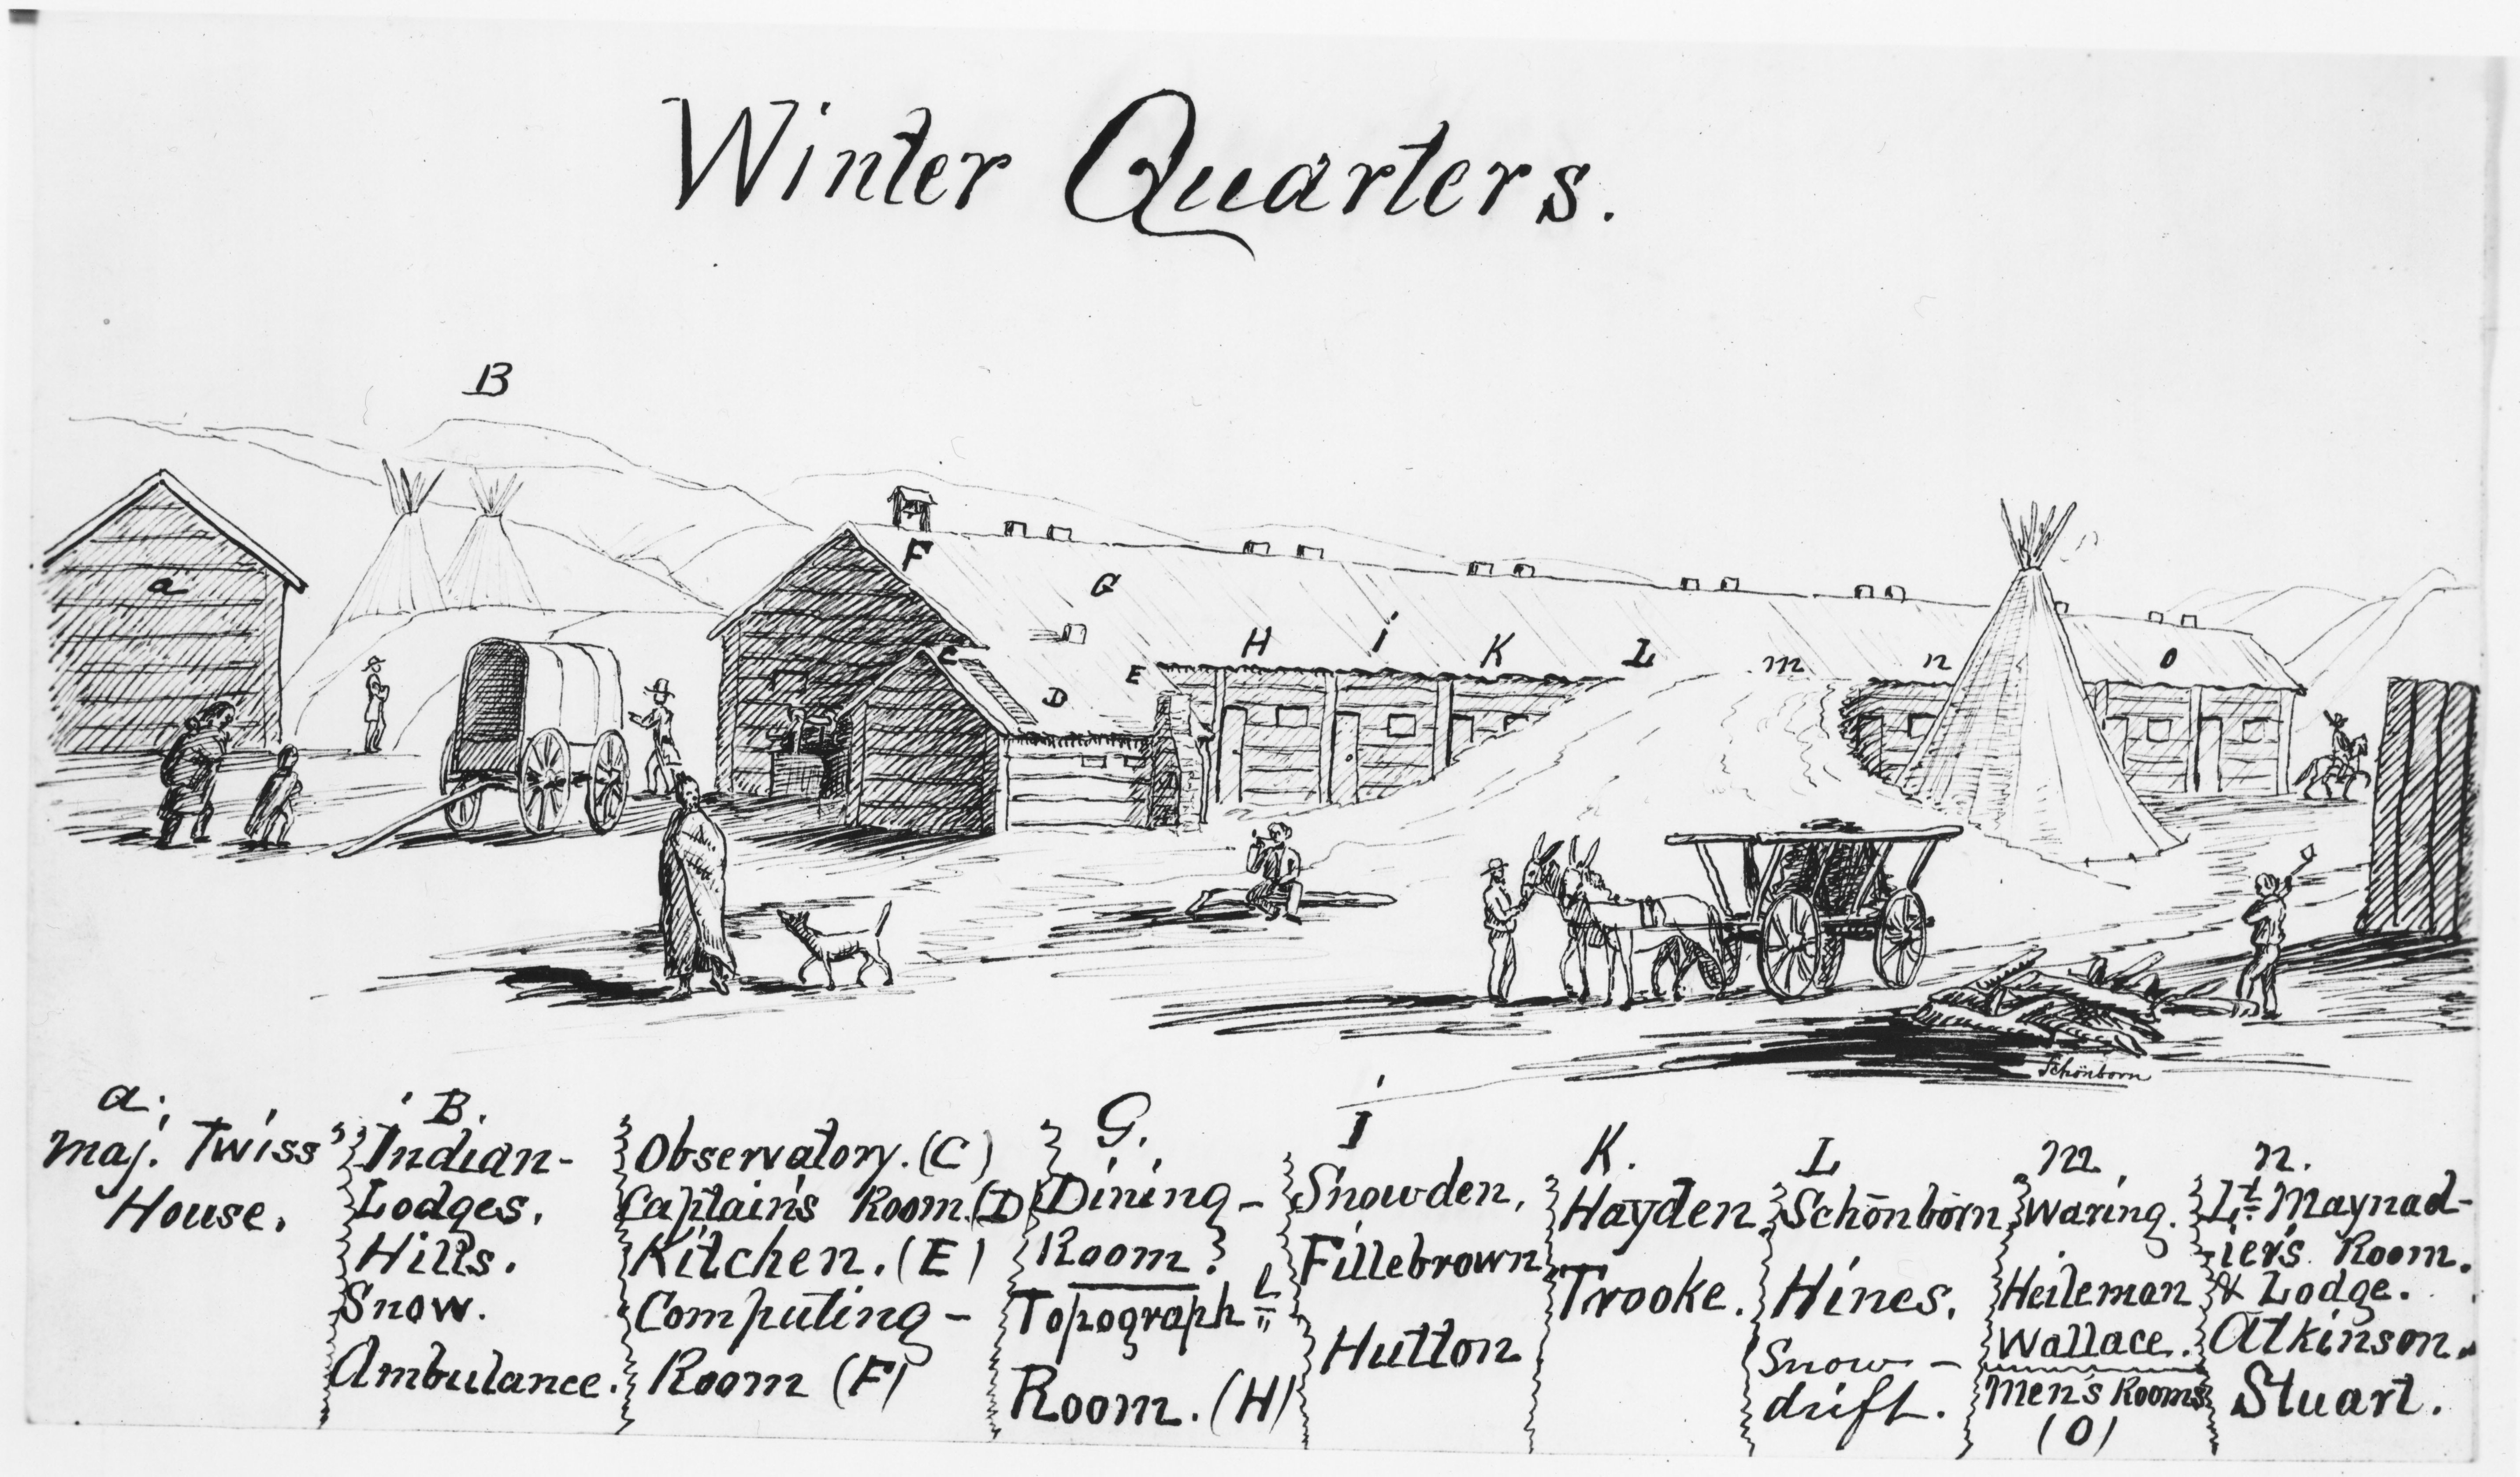 Winter Quarters.
B
a
F
G
C
D
E
H
i
K
L
m
n
O
Schönborn
a.
Maj. Twiss'
House.
B.
Indian-
Lodges.
Hills.
Snow.
Ambulance.
Observatory. (C)
Captain's Room. (D)
Kitchen. (E)
Computing-
Room (F)
G.
Dining-
Room.
Topograph.l
Room. (H)
I
Snowden,
Fillebrown
Hutton
K.
Hayden
Trooke.
L
Schönborn
Hines.
Snow-
drift.
M.
Waring.
Heileman
Wallace.
Men's Rooms
(O)
n.
Lt. Maynad-
ier's Room.
& Lodge.
Atkinson.
Stuart.